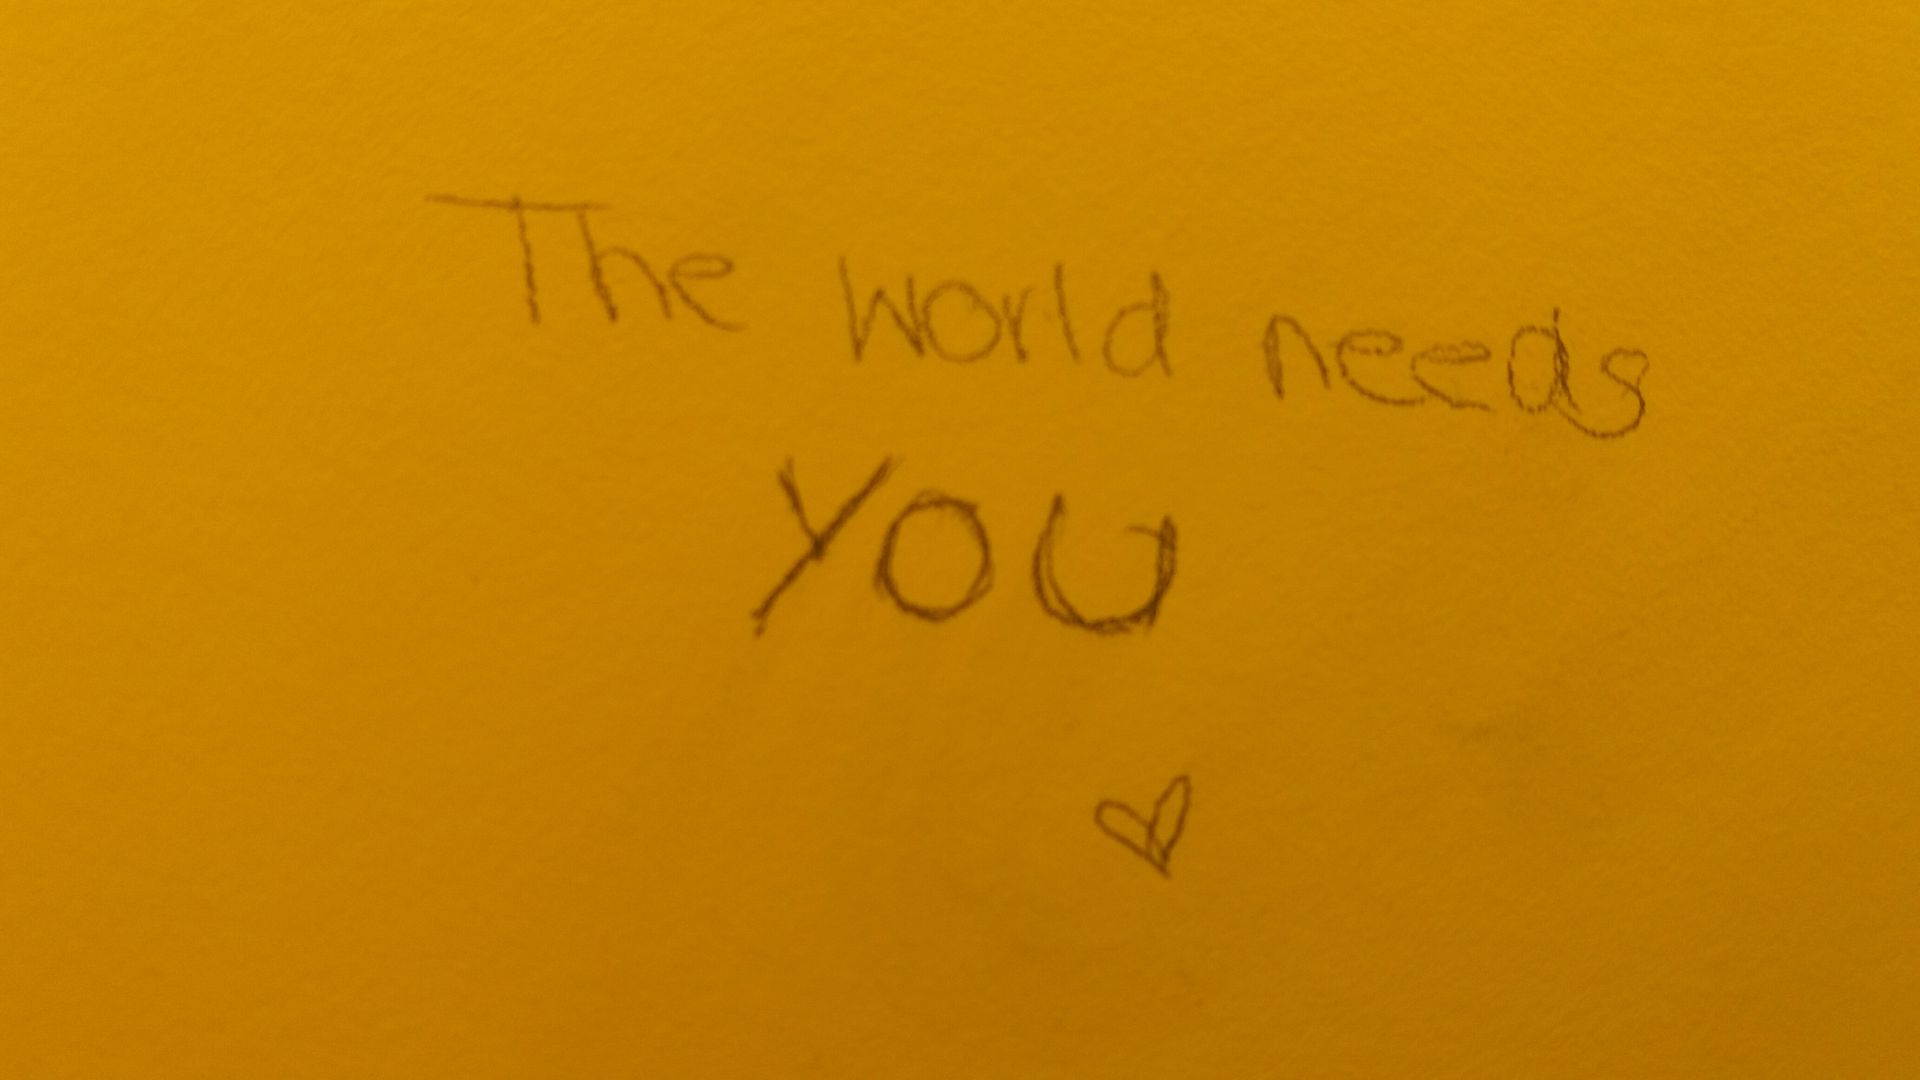 The world needs
YOU